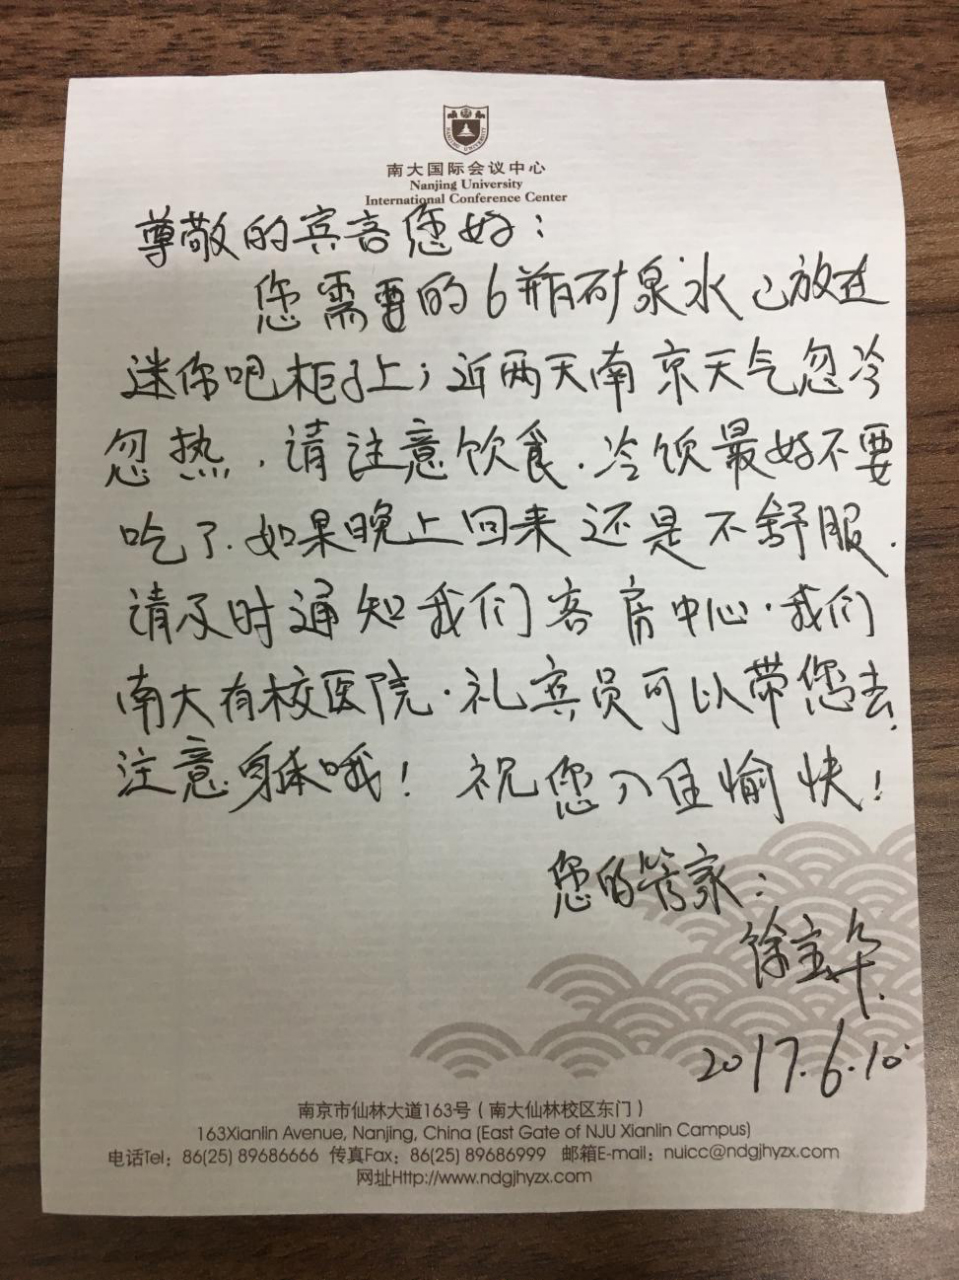 南大国际会议中心
Nanjing University
International Conference Center
尊敬的宾客您好：
您需要的6瓶矿泉水已放在
迷你吧柜子上；近两天南京天气忽冷
忽热，请注意饮食．冷饮最好不要
吃了．如果晚上回来还是不舒服．
请及时通知我们客房中心．我们
南大有校医院．礼宾员可以带您去，
注意身体哦！祝您入住愉快！
您的管家：
徐宝华．
2017.6.10
南京市仙林大道163号（南大仙林校区东门）
163Xianlin Avenue, Nanjing, China (East Gate of NJU Xianlin Campus)
电话Tel：86(25) 89686666 传真Fax：86(25) 89686999 邮箱E-mail：nuicc@ndgjhyzx.com
网址Http://www.ndgjhyzx.com